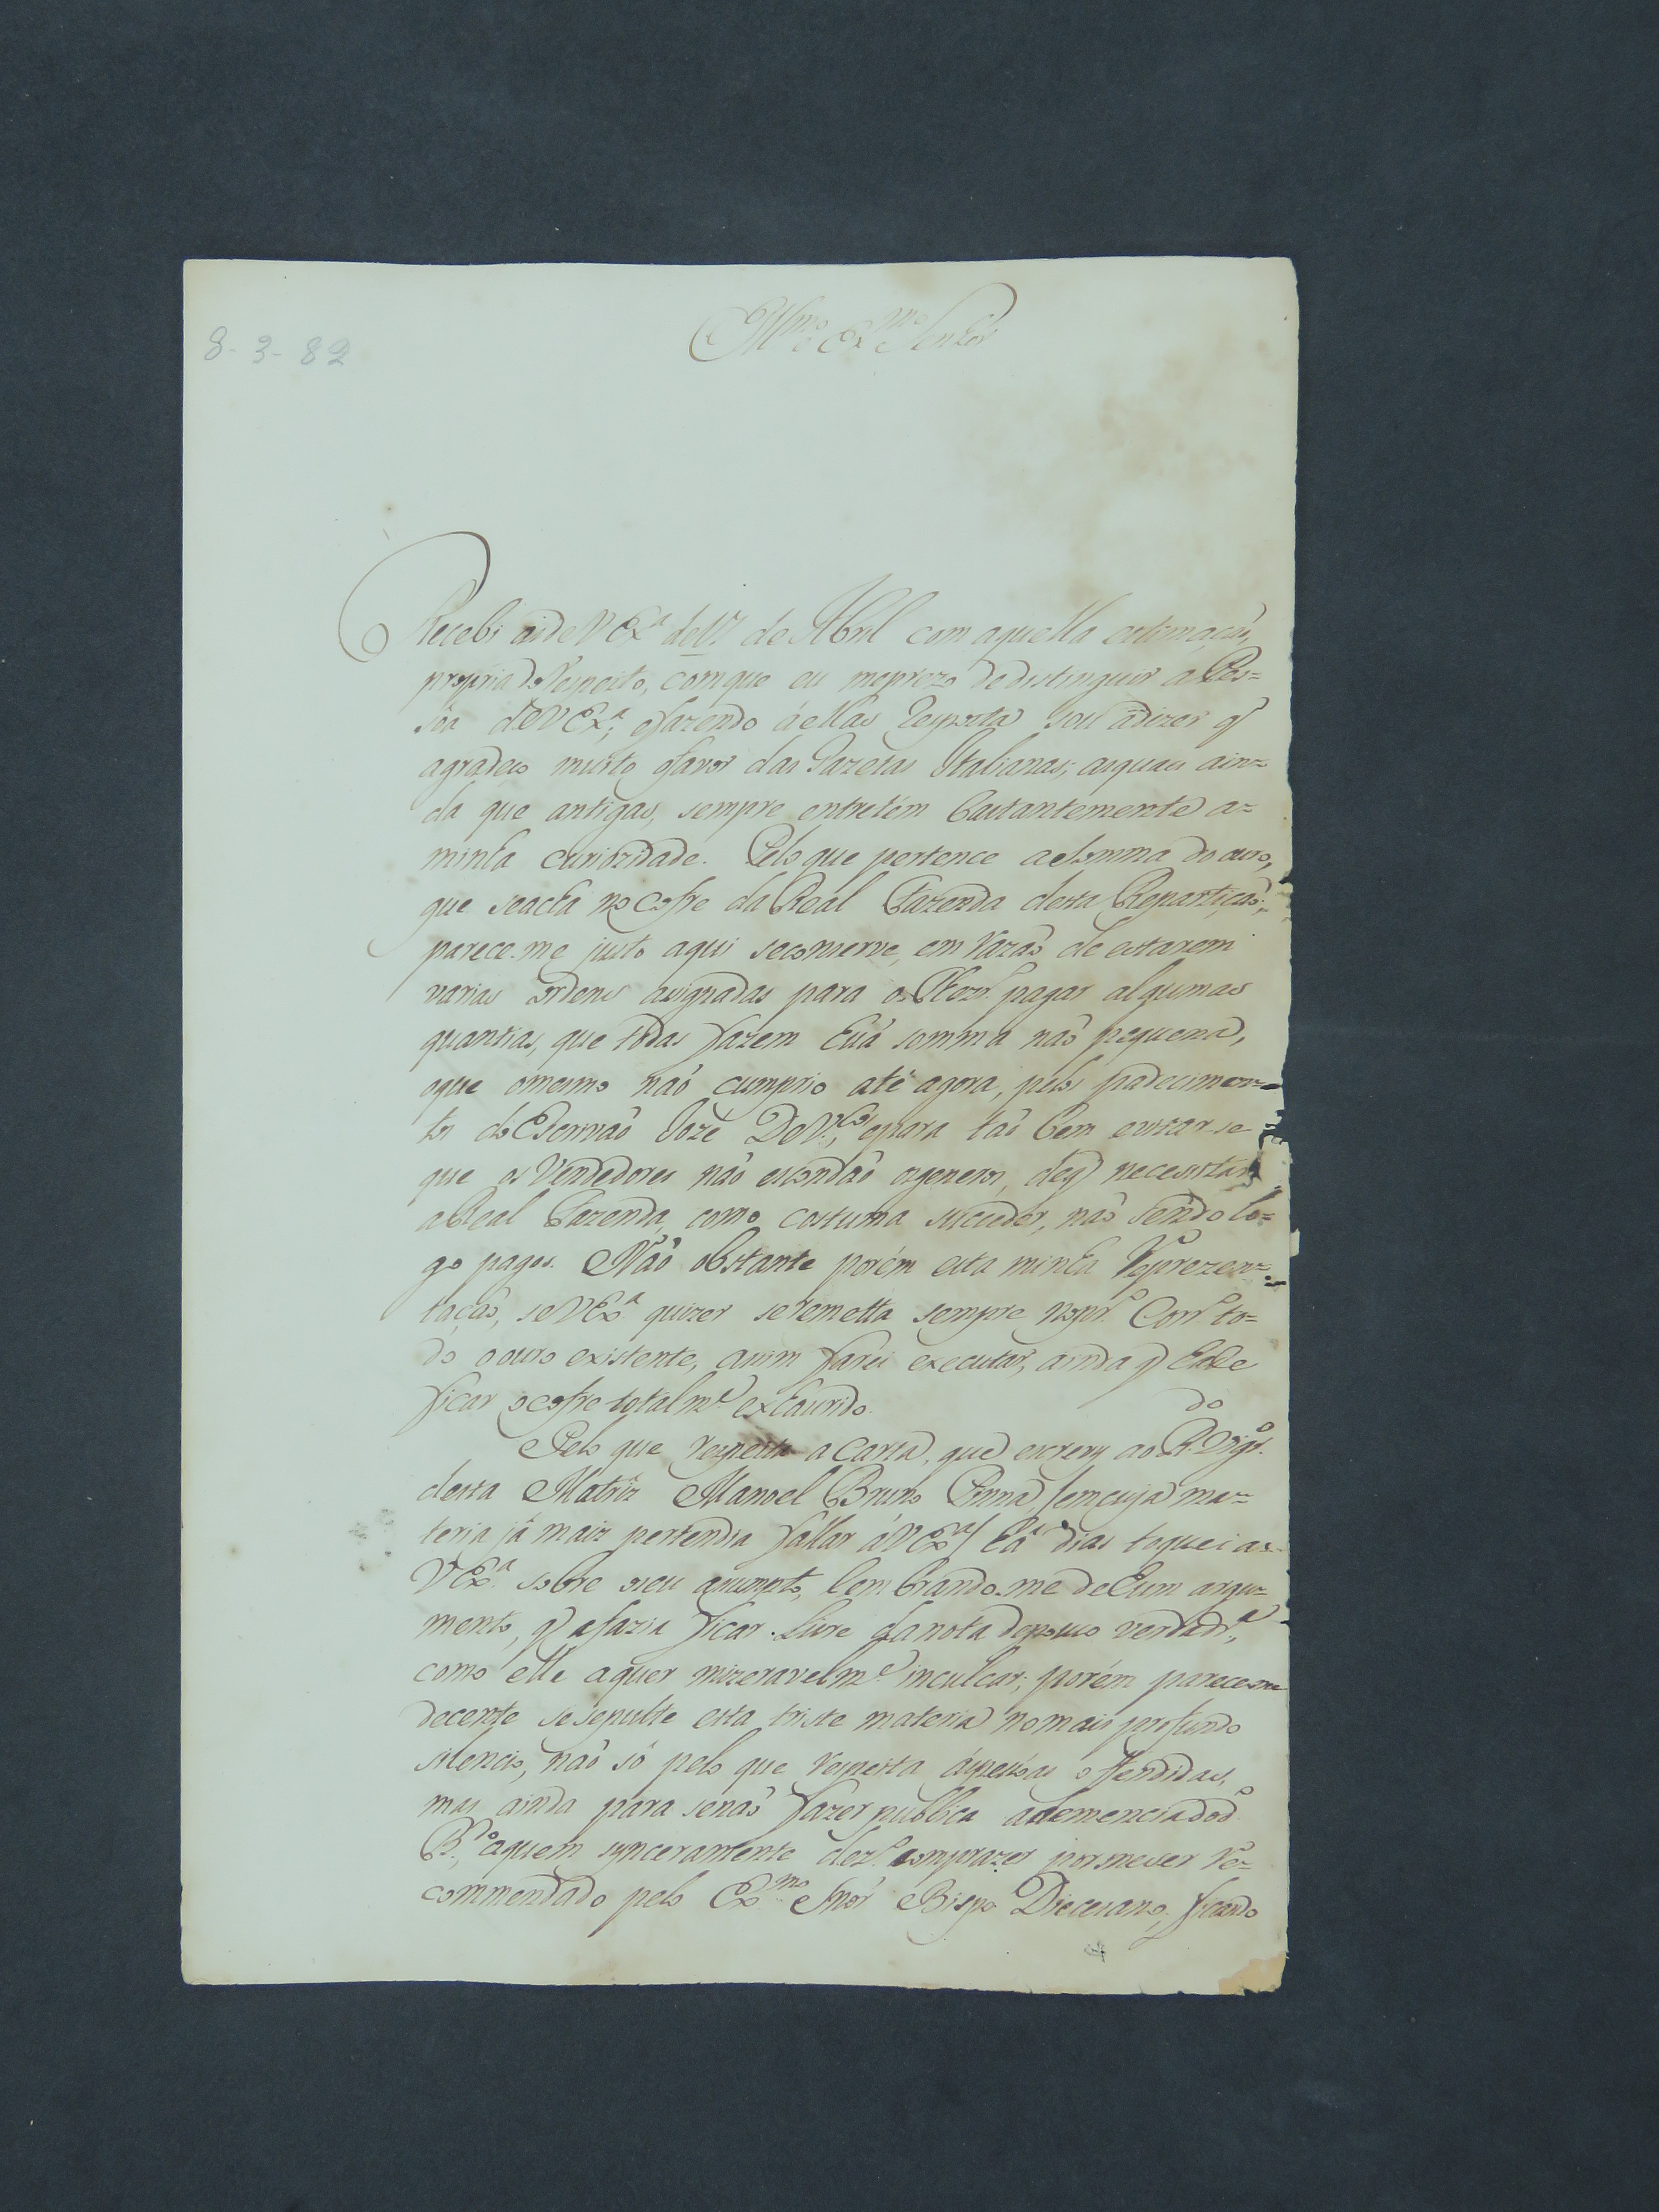 8-3-82
Illmo e Exmo Senhor
Recebi as de VExa de 17 de Abril com aquella estimação,
propria do respeito, com que eu meprezo de distinguir a Pes=
sôa de VExa; e fazendo á ellas resposta sou a dizer q
agradeço muito o favor das Gazetas Italianas; as quaes ain=
da que antigas, sempre entretém bastantemente a=
minha curiozidade. Pelo que pertence a e somma do ouro,
que se acha no cofre da Real Fazenda desta Repartição;
parece-me justo aqui se conserve, em razaõ de estarem
varias ordens assignadas para o Thezr.º pagar algumas
quantias, que todas fazem huá somma naõ pequena,
oque omesmo naõ cumprio até agora, pelos padecimen=
tos do Escrivaõ Jozé epara taõ bem evitar-se
que os Vendedores naõ escondaõ os generos, de q necessitar
a Real Fazenda, como costuma suceder, naõ sendo lo=
go pagos. Naõ obstante porém esta minha reprezen=
taçaõ, se VExa quizer se remetta sempre no pr.º Corr.º to=
do o ouro existente, assim farei executar, ainda q haja de
ficar o cofre totalm.e exhaurido.
Pelo que respeita a carta, que escreveu ao R.do Vigr.º
desta Matriz Manoel Bruno Pinna (em cuja ma=
teria já mais pertendia fallar á VExa) há dias toquei a=
VExa sobre o seu assumpto, lembrando-me de hum argu=
mento, q a fazia ficar livre da nota de pouco verdadr.a,
como elle a quer mizeravelm.e inculcar; porém parece-me
decente se sepulte esta triste materia no mais profundo
silencio, naõ só pelo que respeita ás pessôas offendidas,
mas ainda para senaõ fazer publica a demencia do d.º
R.do, aquem synceramente dez.º comprazer por me ser re=
commendado pelo Exmo Snór Bispo Diecesano; ficando